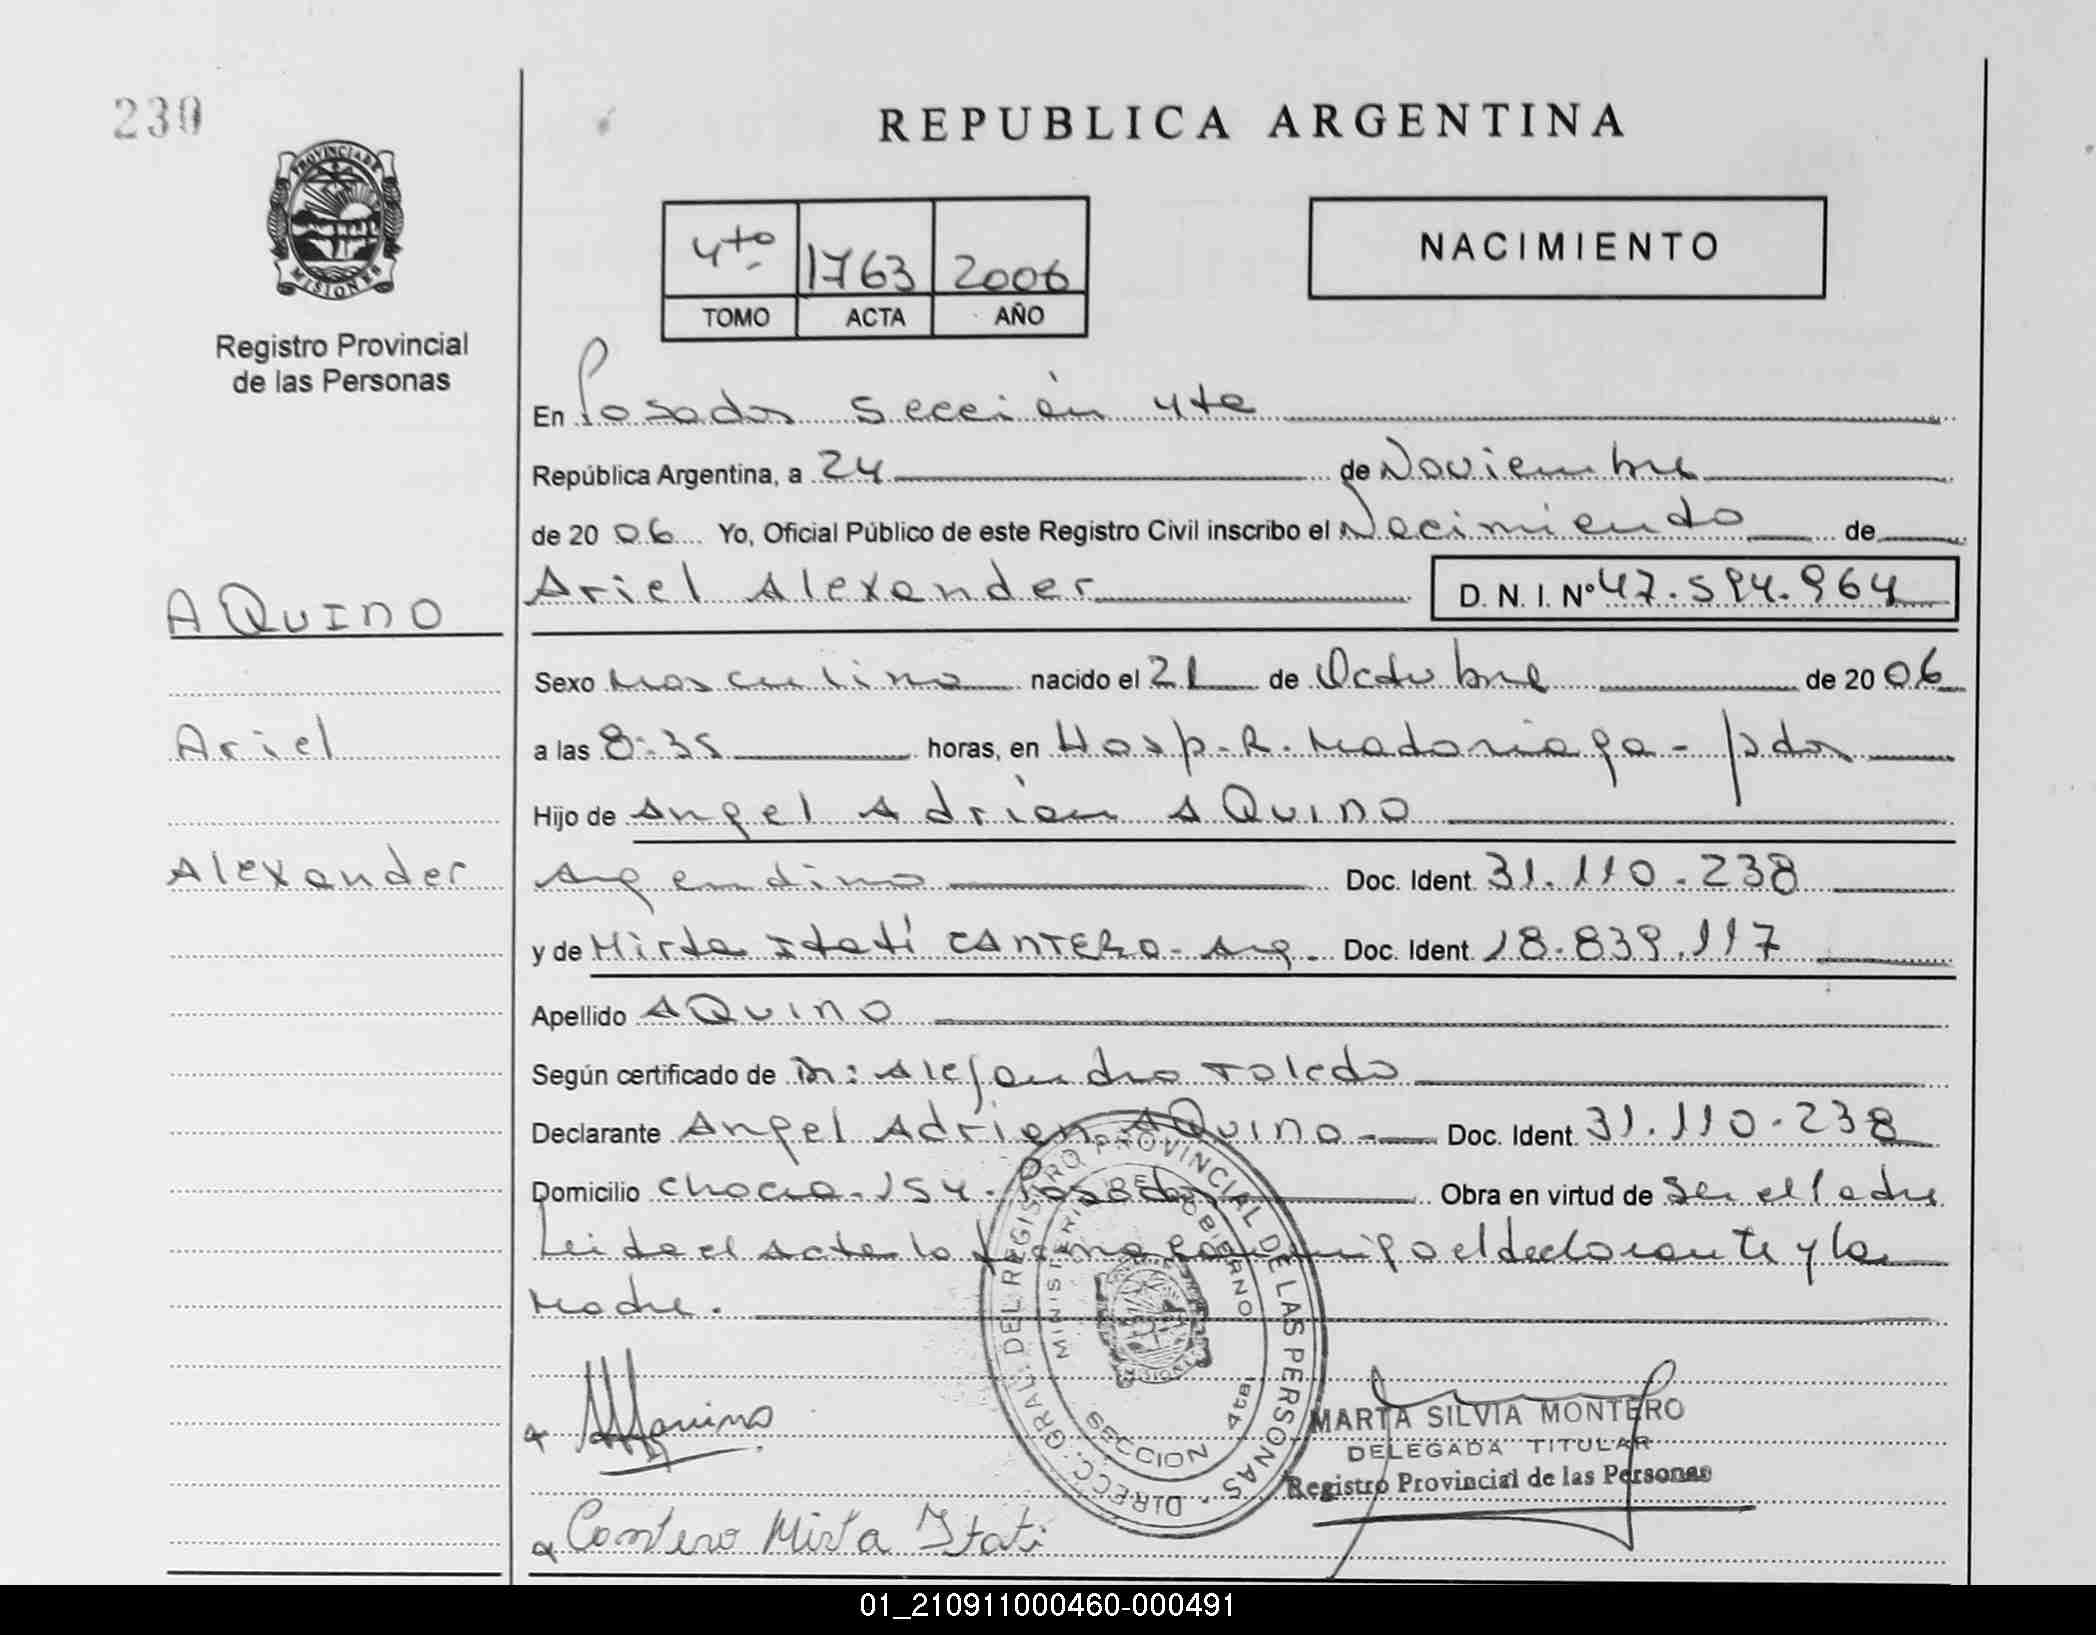 230
REPUBLICA ARGENTINA
PROVINCIA DE MISIONES
Registro Provincial
de las Personas
4to 1763 2006
TOMO ACTA AÑO
NACIMIENTO
En Posadas Sección 4ta
República Argentina, a 24 de Noviembre
de 20 06 Yo, Oficial Público de este Registro Civil inscribo el Nacimiento de
AQUINO
Ariel Alexander D. N. I. Nº 47.594.964
Sexo Masculino nacido el 21 de Octubre de 20 06
Ariel
a las 8:35 horas, en Hosp. R. Madariaga - Pdas
Hijo de Angel Adrián AQUINO
Alexander
Argentino Doc. Ident. 31.110.238
y de Mirta Itatí CANTERO - Arg. Doc. Ident. 18.839.117
Apellido AQUINO
Según certificado de Dr: Alejandro Toledo
Declarante Angel Adrian AQUINO Doc. Ident. 31.110.238
Domicilio 154 - Posadas Obra en virtud de Ser el Padre
Leida el Acta la firma conmigo el declarante y la
Madre.
DIRECC. GRAL. DEL REGISTRO PROVINCIAL DE LAS PERSONAS
MINISTERIO DE GOBIERNO
SECCION 4ta.
MARTA SILVIA MONTERO
DELEGADA TITULAR
Registro Provincial de las Personas
Cantero Mirta Itati
01_210911000460-000491